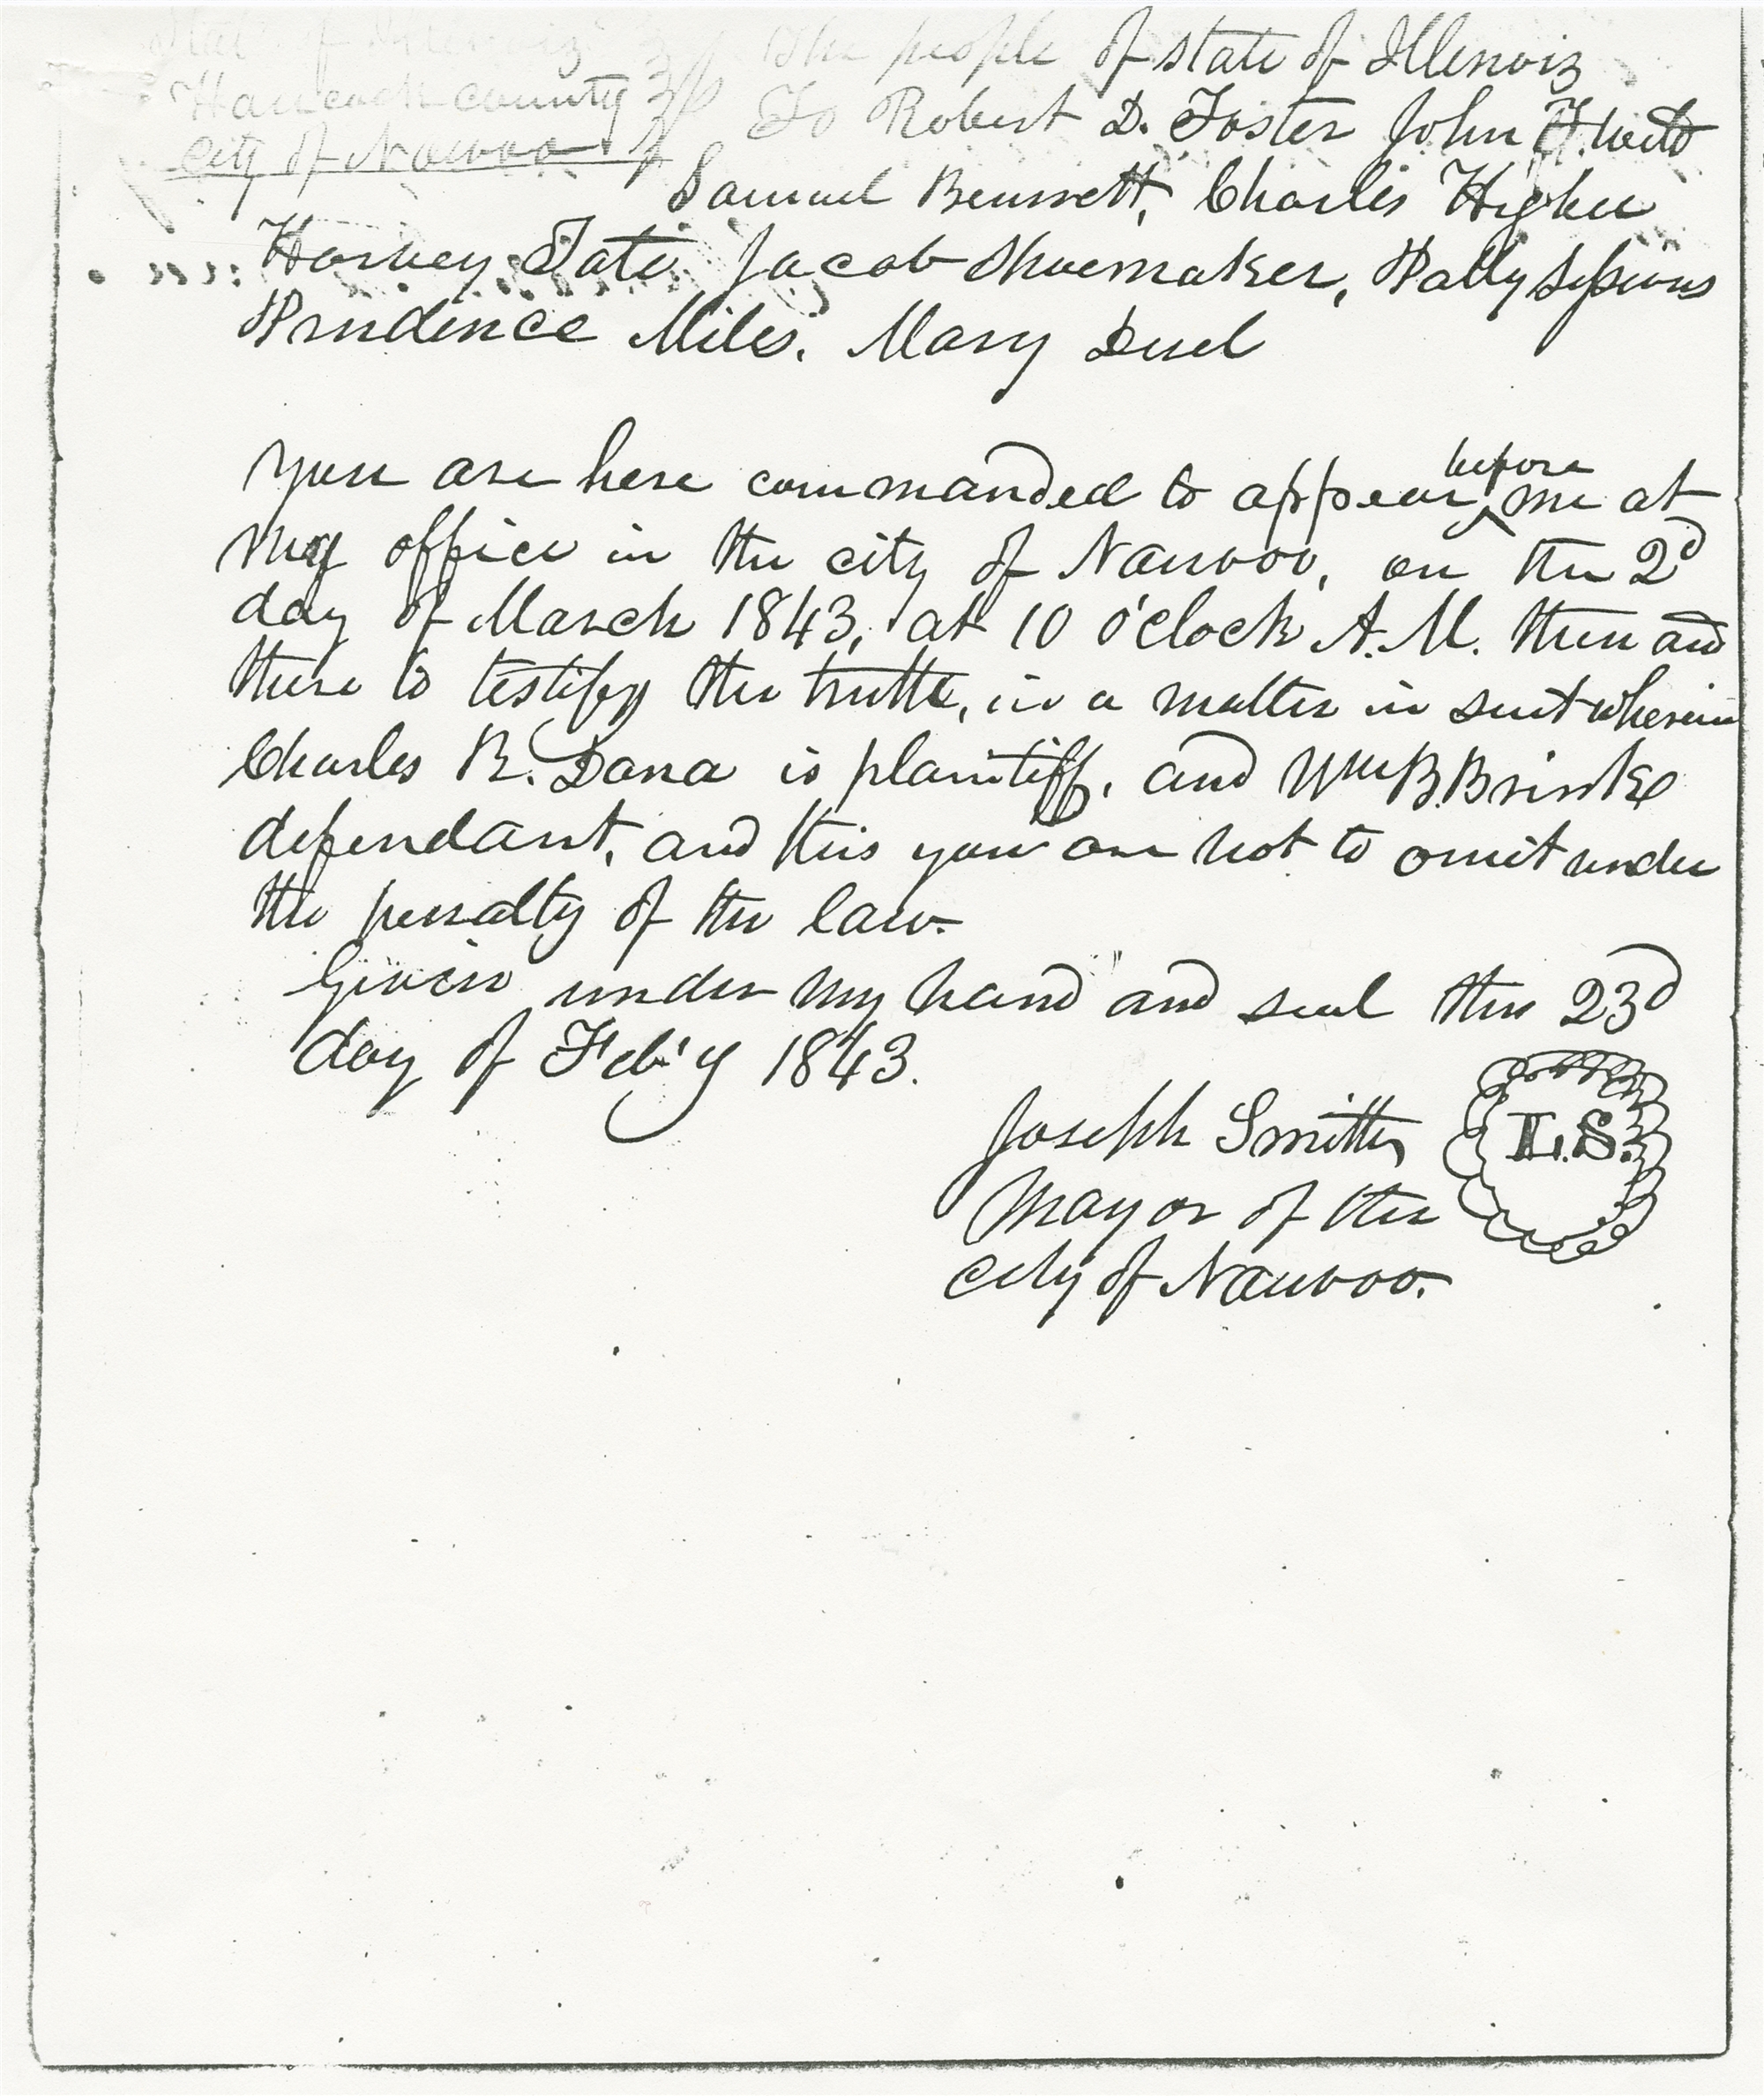 State of Illenoiz } The people of state of Illenoiz
Hancock county } To Robert D. Foster John F. Weld
city of Nauvoo }
Samuel Bennett, Charles Higbee
Harvey Tate, Jacob Shoemaker, Polly
Prudence Miles. Mary Duel
You are here commanded to appear before me at
my office in the city of Nauvoo, on the 2d
day of March 1843, at 10 o'clock A.M. then and
there to testify the truth, in a matter in suit wherein
Charles R. Dana is plaintiff, and Wm B. Brink
defendant, and this you are not to omit under
the penalty of the law.
Given under my hand and seal this 23d
day of Feb'y 1843.
Joseph Smith L.S.
Mayor of the
city of Nauvoo.